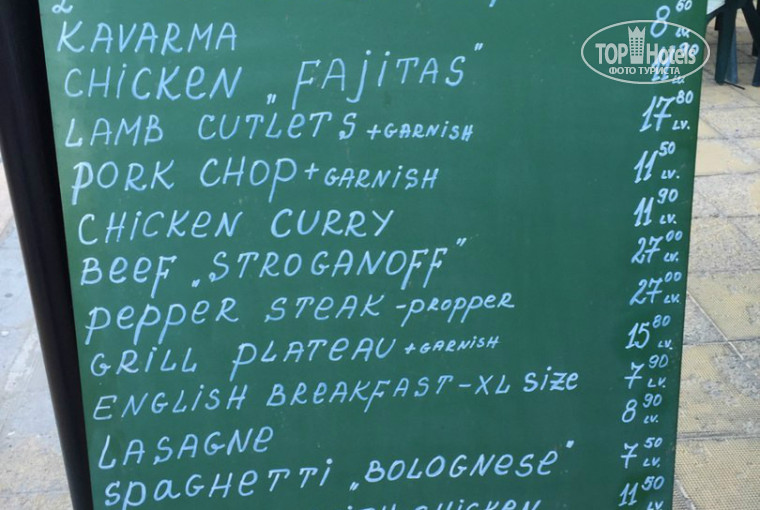 KAVARMA 8 60 LV.
CHICKEN „FAJITAS" 11 90 LV.
LAMB CUTLETS + GARNISH 17 80 LV.
PORK CHOP + GARNISH 11 50 LV.
CHICKEN CURRY 11 90 LV.
BEEF „STROGANOFF" 27 00 LV.
PEPPER STEAK - PROPPER 27 00 LV.
GRILL PLATEAU + GARNISH 15 80 LV.
ENGLISH BREAKFAST - XL SIZE 7 90 LV.
LASAGNE 8 90 LV.
SPAGHETTI „BOLOGNESE" 7 50 LV.
CHICKEN 11 50 LV
TOP Hotels
ФОТО ТУРИСТА